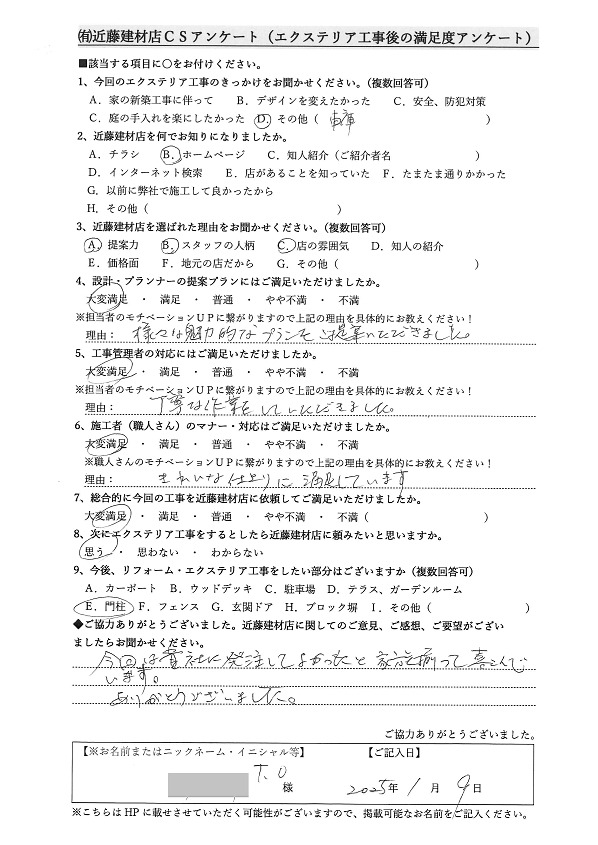 ㈲近藤建材店ＣＳアンケート（エクステリア工事後の満足度アンケート）
■該当する項目に〇をお付けください。
1、今回のエクステリア工事のきっかけをお聞かせください。（複数回答可）
A．家の新築工事に伴って　B．デザインを変えたかった　C．安全、防犯対策
C．庭の手入れを楽にしたかった　D．その他（ 車庫 ）
2、近藤建材店を何でお知りになりましたか。
A．チラシ　B．ホームページ　C．知人紹介（ご紹介者名　）
D．インターネット検索　E．店があることを知っていた　F．たまたま通りかかった
G．以前に弊社で施工して良かったから
H．その他（　）
3、近藤建材店を選ばれた理由をお聞かせください。（複数回答可）
A．提案力　B．スタッフの人柄　C．店の雰囲気　D．知人の紹介
E．価格面　F．地元の店だから　G．その他（　）
4、設計・プランナーの提案プランにはご満足いただけましたか。
大変満足　・　満足　・　普通　・　やや不満　・　不満
※担当者のモチベーションＵＰに繋がりますので上記の理由を具体的にお教えください！
理由： 様々な魅力的なプランをご提案いただきました。
5、工事管理者の対応にはご満足いただけましたか。
大変満足　・　満足　・　普通　・　やや不満　・　不満
※担当者のモチベーションＵＰに繋がりますので上記の理由を具体的にお教えください！
理由： 丁寧な作業をしていただきました。
6、施工者（職人さん）のマナー・対応はご満足いただけましたか。
大変満足　・　満足　・　普通　・　やや不満　・　不満
※職人さんのモチベーションＵＰに繋がりますので上記の理由を具体的にお教えください！
理由： きれいな仕上りに満足しています
7、総合的に今回の工事を近藤建材店に依頼してご満足いただけましたか。
大変満足　・　満足　・　普通　・　やや不満　・　不満（　）
8、次にエクステリア工事をするとしたら近藤建材店に頼みたいと思いますか。
思う　・　思わない　・　わからない
9、今後、リフォーム・エクステリア工事をしたい部分はございますか（複数回答可）
A．カーポート　B．ウッドデッキ　C．駐車場　D．テラス、ガーデンルーム
E．門柱　F．フェンス　G．玄関ドア　H．ブロック塀　I．その他（　）
◆ご協力ありがとうございました。近藤建材店に関してのご意見、ご感想、ご要望がござい
ましたらお聞かせください。
今回は貴社に発注してよかったと家族揃って喜んで
います。
ありがとうございました。
ご協力ありがとうございました。
【※お名前またはニックネーム・イニシャル等】　【ご記入日】
T.O 様　2025年 1月 9日
※こちらはHPに載せさせていただく可能性がございますので、掲載可能なお名前をご記入ください。